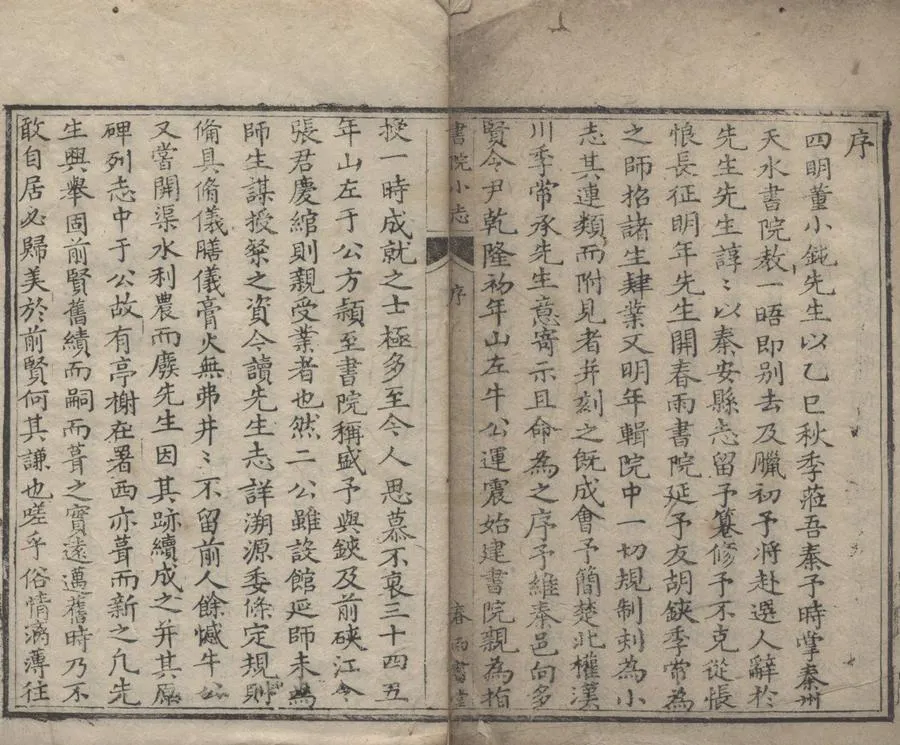 序
四明董小鈍先生以乙巳秋季蒞吾秦予時掌秦州
天水書院教一晤即別去及臘初予將赴選人辭於
先生先生諄〻以秦安縣志留予纂修予不克從悵
悢長征明年先生開春雨書院延予友胡鋏季常為
之師招諸生肄業又明年輯院中一切規制刺為小
志其連類而附見者并刻之既成會予簡楚北權漢
川季常承先生意寄示且命為之序予維秦邑向多
賢令尹乾隆初年山左牛公運震始建書院親為指
書院小志
序
春雨書堂
授一時成就之士極多至今人思慕不衷三十四五
年山左于公方頴至書院稱盛予與鋏及前硤江令
張君慶綰則親受業者也然二公雖設館延師未為
師生謀授粲之資今讀先生志詳溯源委條定規則
俻具脩儀膳儀膏火無弗井〻不留前人餘憾牛公
又嘗開渠水利農而廢先生因其跡續成之并其原
碑列志中于公故有亭榭在署西亦葺而新之凡先
生興舉固前賢舊績而嗣而葺之實遠邁舊時乃不
敢自居必歸美於前賢何其謙也嗟乎俗情漓薄往